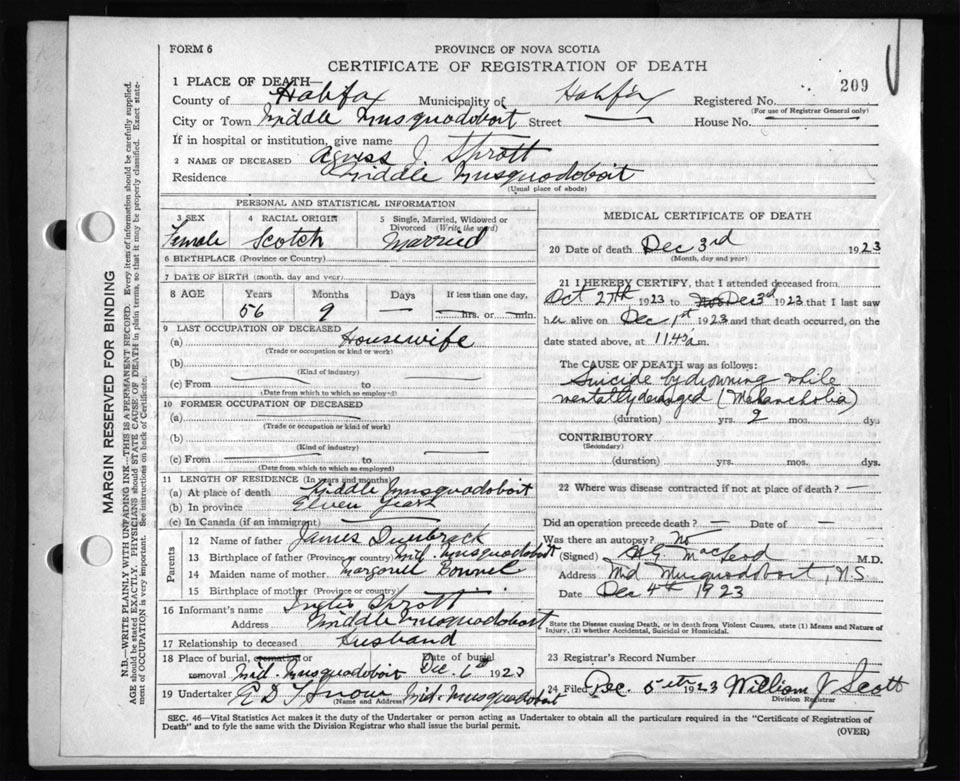 FORM 6
PROVINCE OF NOVA SCOTIA
CERTIFICATE OF REGISTRATION OF DEATH
209
1 PLACE OF DEATH—
County of Halifax Municipality of Halifax Registered No.
(For use of Registrar General only)
City or Town Middle Musquodoboit Street House No.
If in hospital or institution, give name
2 NAME OF DECEASED Agness J. Sprott
Residence Middle Musquodoboit
(Usual place of abode)
PERSONAL AND STATISTICAL INFORMATION
3 SEX Female
4 RACIAL ORIGIN Scotch
5 Single, Married, Widowed or Divorced (Write the word) Married
6 BIRTHPLACE (Province or Country)
7 DATE OF BIRTH (month, day and year)
8 AGE Years Months Days If less than one day,
56 9 — — hrs. or — min.
9 LAST OCCUPATION OF DECEASED
(a) Housewife
(Trade or occupation or kind of work)
(b)
(Kind of industry)
(c) From to
(Date from which to which so employed)
10 FORMER OCCUPATION OF DECEASED
(a)
(Trade or occupation or kind of work)
(b)
(Kind of industry)
(c) From to
(Date from which to which so employed)
11 LENGTH OF RESIDENCE (In years and months)
(a) At place of death Middle Musquodoboit
(b) In province Eleven years
(c) In Canada (if an immigrant)
Parents
12 Name of father James Dunbrack
13 Birthplace of father (Province or country) Mid. Musquodoboit
14 Maiden name of mother
15 Birthplace of mother (Province or country)
16 Informant's name Inglis Sprott
Address Middle Musquodoboit
17 Relationship to deceased Husband
18 Place of burial, cremation or removal Mid. Musquodoboit Date of burial Dec. 6th 1923
19 Undertaker R D T Snow Mid. Musquodoboit
(Name and Address)
MEDICAL CERTIFICATE OF DEATH
20 Date of death Dec 3rd 1923
(Month, day and year)
21 I HEREBY CERTIFY, that I attended deceased from
Oct 27th 1923 to Nov Dec 3rd 1923 that I last saw
her alive on Dec 1st 1923 and that death occurred, on the
date stated above, at 11.45 a.m.
The CAUSE OF DEATH was as follows:
Suicide by drowning while
mentally deranged (Melancholia)
(duration) yrs. 2 mos. dys
CONTRIBUTORY
(Secondary)
(duration) yrs. mos. dys.
22 Where was disease contracted if not at place of death? —
Did an operation precede death? — Date of —
Was there an autopsy? No
(Signed) MacLeod M.D.
Address Mid Musquodoboit, N.S.
Date Dec 4th 1923
State the Disease causing Death, or in death from Violent Causes, state (1) Means and Nature of
Injury, (2) whether Accidental, Suicidal or Homicidal.
23 Registrar's Record Number
24 Filed Dec. 5th 1923 William J Scott
Division Registrar
SEC. 46—Vital Statistics Act makes it the duty of the Undertaker or person acting as Undertaker to obtain all the particulars required in the "Certificate of Registration of
Death" and to fyle the same with the Division Registrar who shall issue the burial permit.
(OVER)
MARGIN RESERVED FOR BINDING
N.B.—WRITE PLAINLY WITH UNFADING INK—THIS IS A PERMANENT RECORD. Every item of information should be carefully supplied.
AGE should be stated EXACTLY. PHYSICIANS should STATE CAUSE OF DEATH in plain terms, so that it may be properly classified. Exact state-
ment of OCCUPATION is very important. See instructions on back of Certificate.